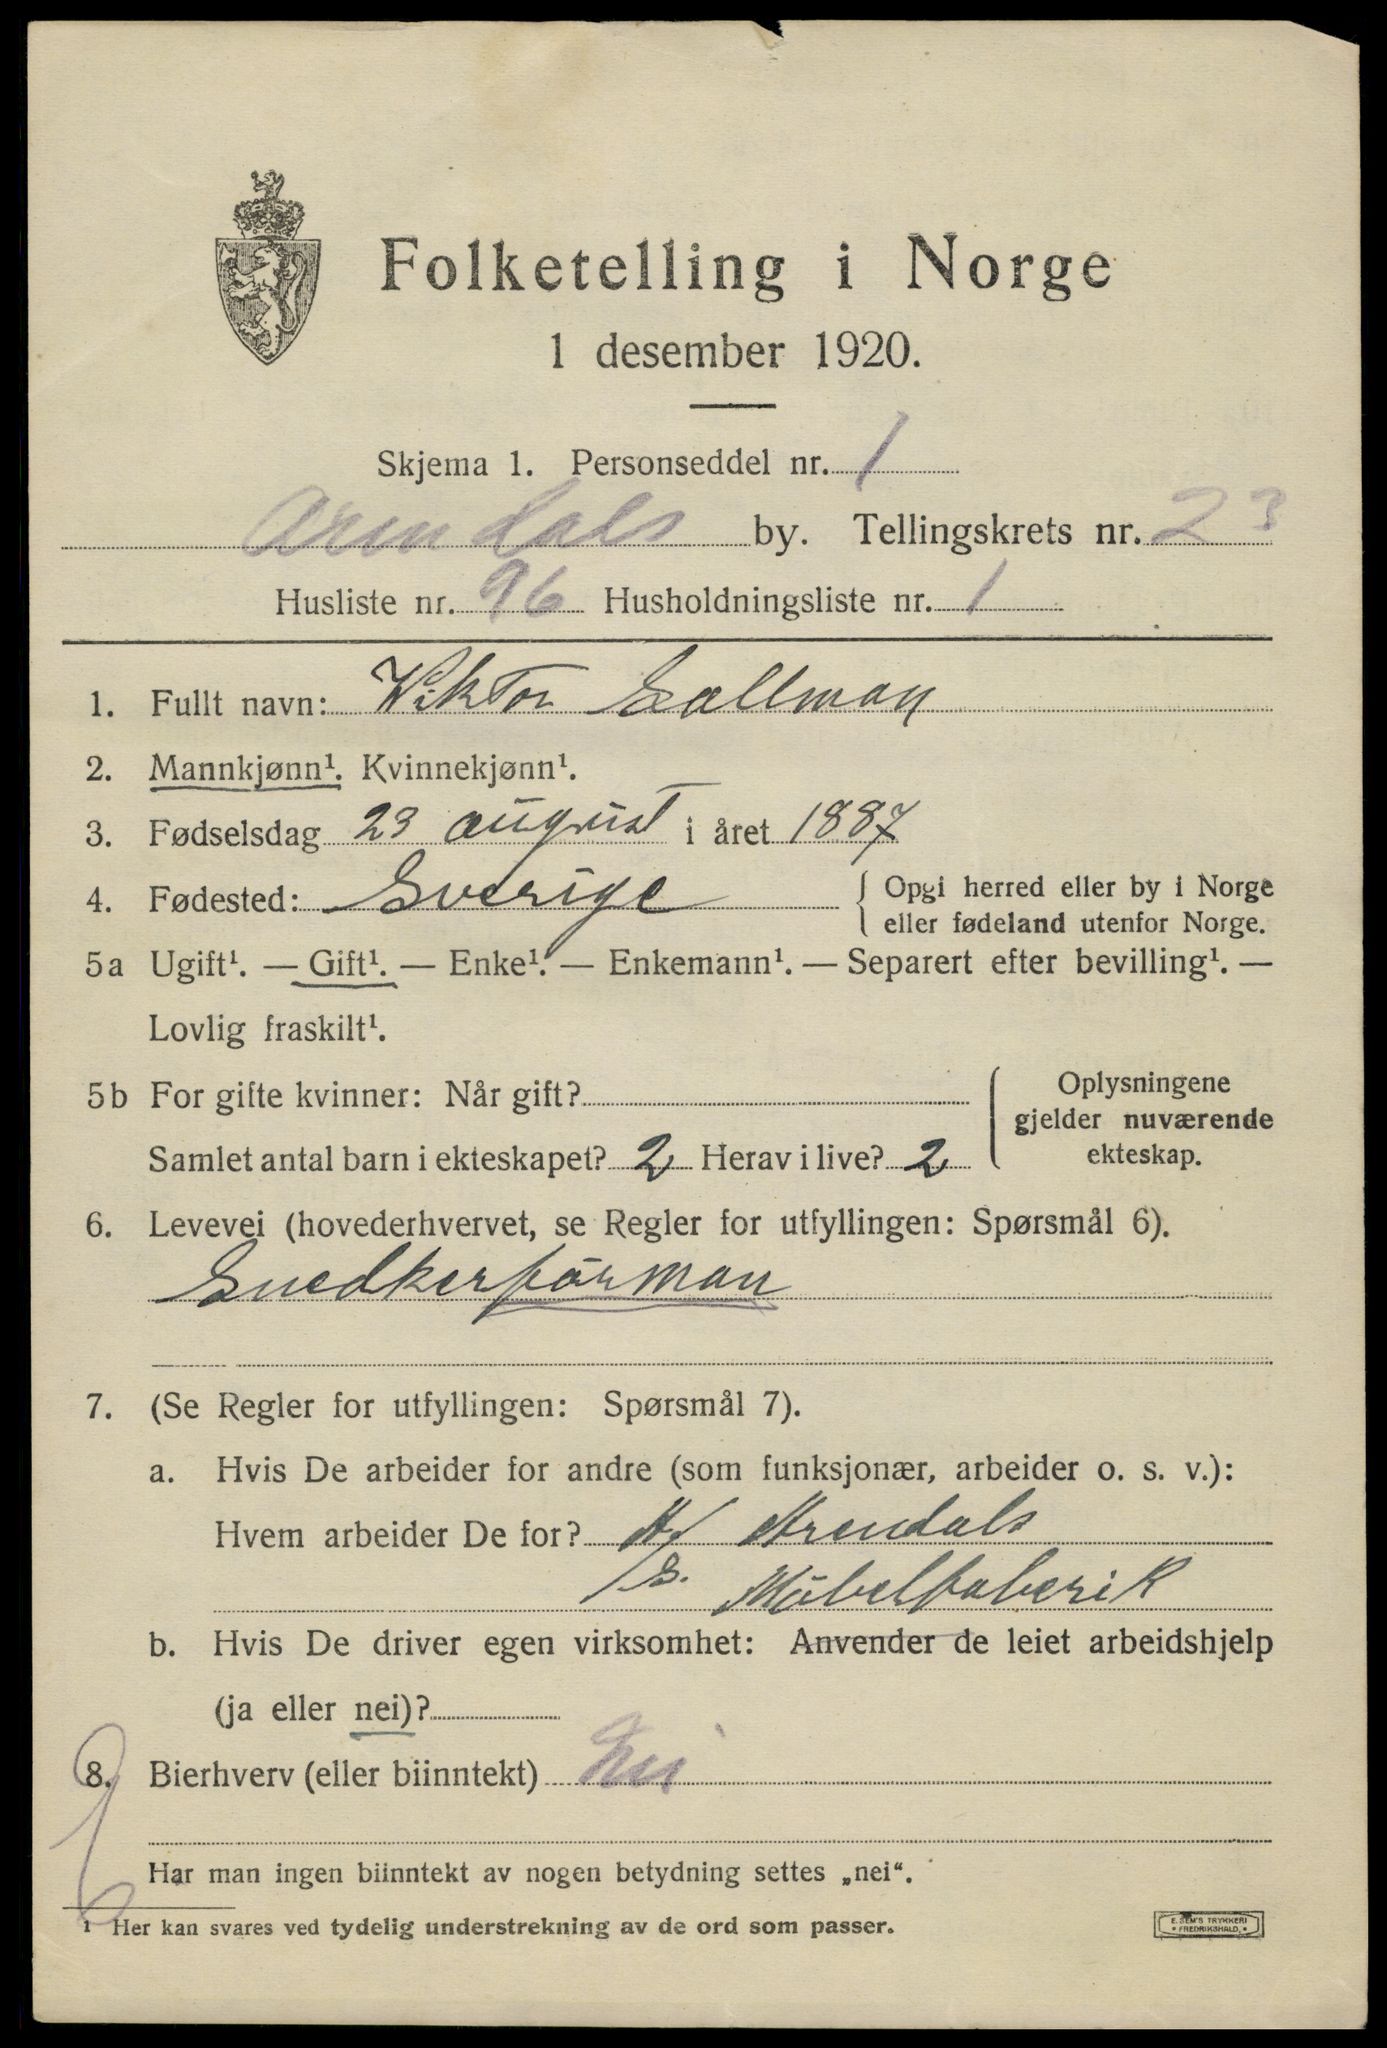 Folketelling i Norge
1 desember 1920.
Skjema 1. Personseddel nr. 1
Arendals by. Tellingskrets nr. 23
Husliste nr. 96 Husholdningsliste nr. 1
1. Fullt navn: Viktor Sallman
2. Mannkjønn¹. Kvinnekjønn¹.
3. Fødselsdag 23 august i året 1887
4. Fødested: Sverige { Opgi herred eller by i Norge
eller fødeland utenfor Norge.
5a Ugift¹. — Gift¹. — Enke¹. — Enkemann¹. — Separert efter bevilling¹. —
Lovlig fraskilt¹.
5b For gifte kvinner: Når gift?
Samlet antal barn i ekteskapet? 2 Herav i live? 2
Oplysningene
gjelder nuværende
ekteskap.
6. Levevei (hovederhvervet, se Regler for utfyllingen: Spørsmål 6).
Snedkerförman
7. (Se Regler for utfyllingen: Spørsmål 7).
a. Hvis De arbeider for andre (som funksjonær, arbeider o. s. v.):
Hvem arbeider De for? A/S. Arendals
Möbelfaberik
b. Hvis De driver egen virksomhet: Anvender de leiet arbeidshjelp
(ja eller nei)?
8. Bierhverv (eller biinntekt) Nei
Har man ingen biinntekt av nogen betydning settes „nei".
¹ Her kan svares ved tydelig understrekning av de ord som passer.
E. SEM'S TRYKKERI
• FREDRIKSHALD. •